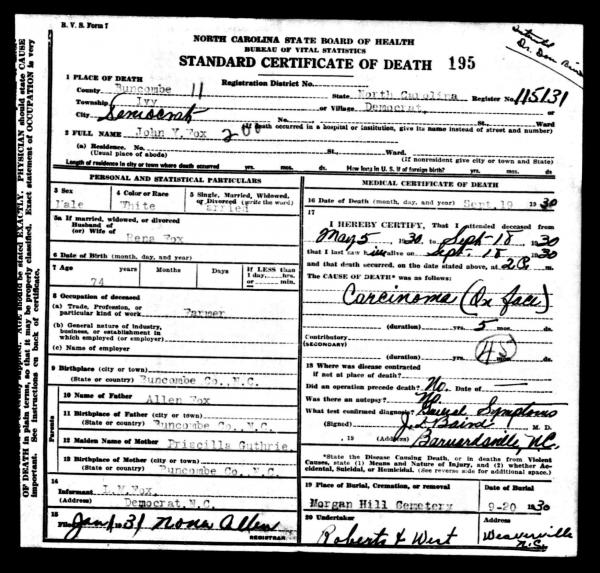 R. V. S. Form 7
NORTH CAROLINA STATE BOARD OF HEALTH
BUREAU OF VITAL STATISTICS
STANDARD CERTIFICATE OF DEATH 195
1 PLACE OF DEATH
Registration District No.
County Buncombe 11 State North Carolina Register No. 115131
Township Ivy or Village Democrat, or
City Democrat No. St. Ward
(If death occurred in a hospital or institution, give its name instead of street and number)
2 FULL NAME John Y. Fox 200
(a) Residence. No. St., Ward.
(Usual place of abode) (If nonresident give city or town and State)
Length of residence in city or town where death occurred yrs. mos. ds. How long in U. S. if of foreign birth? yrs. mos. ds.
PERSONAL AND STATISTICAL PARTICULARS
3 Sex 4 Color or Race 5 Single, Married, Widowed, or Divorced (write the word)
Male White Married
5a If married, widowed, or divorced
Husband of
(or) Wife of Rena Fox
6 Date of Birth (month, day, and year)
7 Age years Months Days If LESS than 1 day, hrs. or min.
74
8 Occupation of deceased
(a) Trade, Profession, or particular kind of work Farmer
(b) General nature of industry, business, or establishment in which employed (or employer)
(c) Name of employer
9 Birthplace (city or town)
(State or country) Buncombe Co., N.C.
Parents
10 Name of Father Allen Fox
11 Birthplace of Father (city or town)
(State or country) Buncombe Co., N.C.
12 Maiden Name of Mother Priscilla Guthrie
13 Birthplace of Mother (city or town)
(State or country) Buncombe Co., N.C.
14
Informant L.M. Fox,
(Address) Democrat, N.C.
15
Filed Jan 1 1931 Nona Allen
REGISTRAR.
MEDICAL CERTIFICATE OF DEATH
16 Date of Death (month, day, and year) Sept. 19 1930
17
I HEREBY CERTIFY, That I attended deceased from
May 5 1930, to Sept. 18 1930
that I last saw him alive on Sept. 18 1930
and that death occurred, on the date stated above, at 2 A m.
The CAUSE OF DEATH* was as follows:
Carcinoma (Rx face)
(duration) yrs. 5 mos. ds.
Contributory 45
(SECONDARY)
(duration) yrs. mos. ds.
18 Where was disease contracted
if not at place of death?
Did an operation precede death? No. Date of —
Was there an autopsy? No
What test confirmed diagnosis? General Symptoms
(Signed) J. L. Baird M. D.
, 19 (Address) Barnardsville N.C.
*State the Disease Causing Death, or in deaths from Violent Causes, state (1) Means and Nature of Injury, and (2) whether Accidental, Suicidal, or Homicidal. (See reverse side for additional space.)
19 Place of Burial, Cremation, or removal Date of Burial
Morgan Hill Cemetery 9-20 1930
20 Undertaker Address
Roberts & West Weaverville N.C.
PHYSICIAN should state CAUSE
OF DEATH in plain terms, so that it may be properly classified. Exact statement of OCCUPATION is very
important. See instructions on back of certificate.